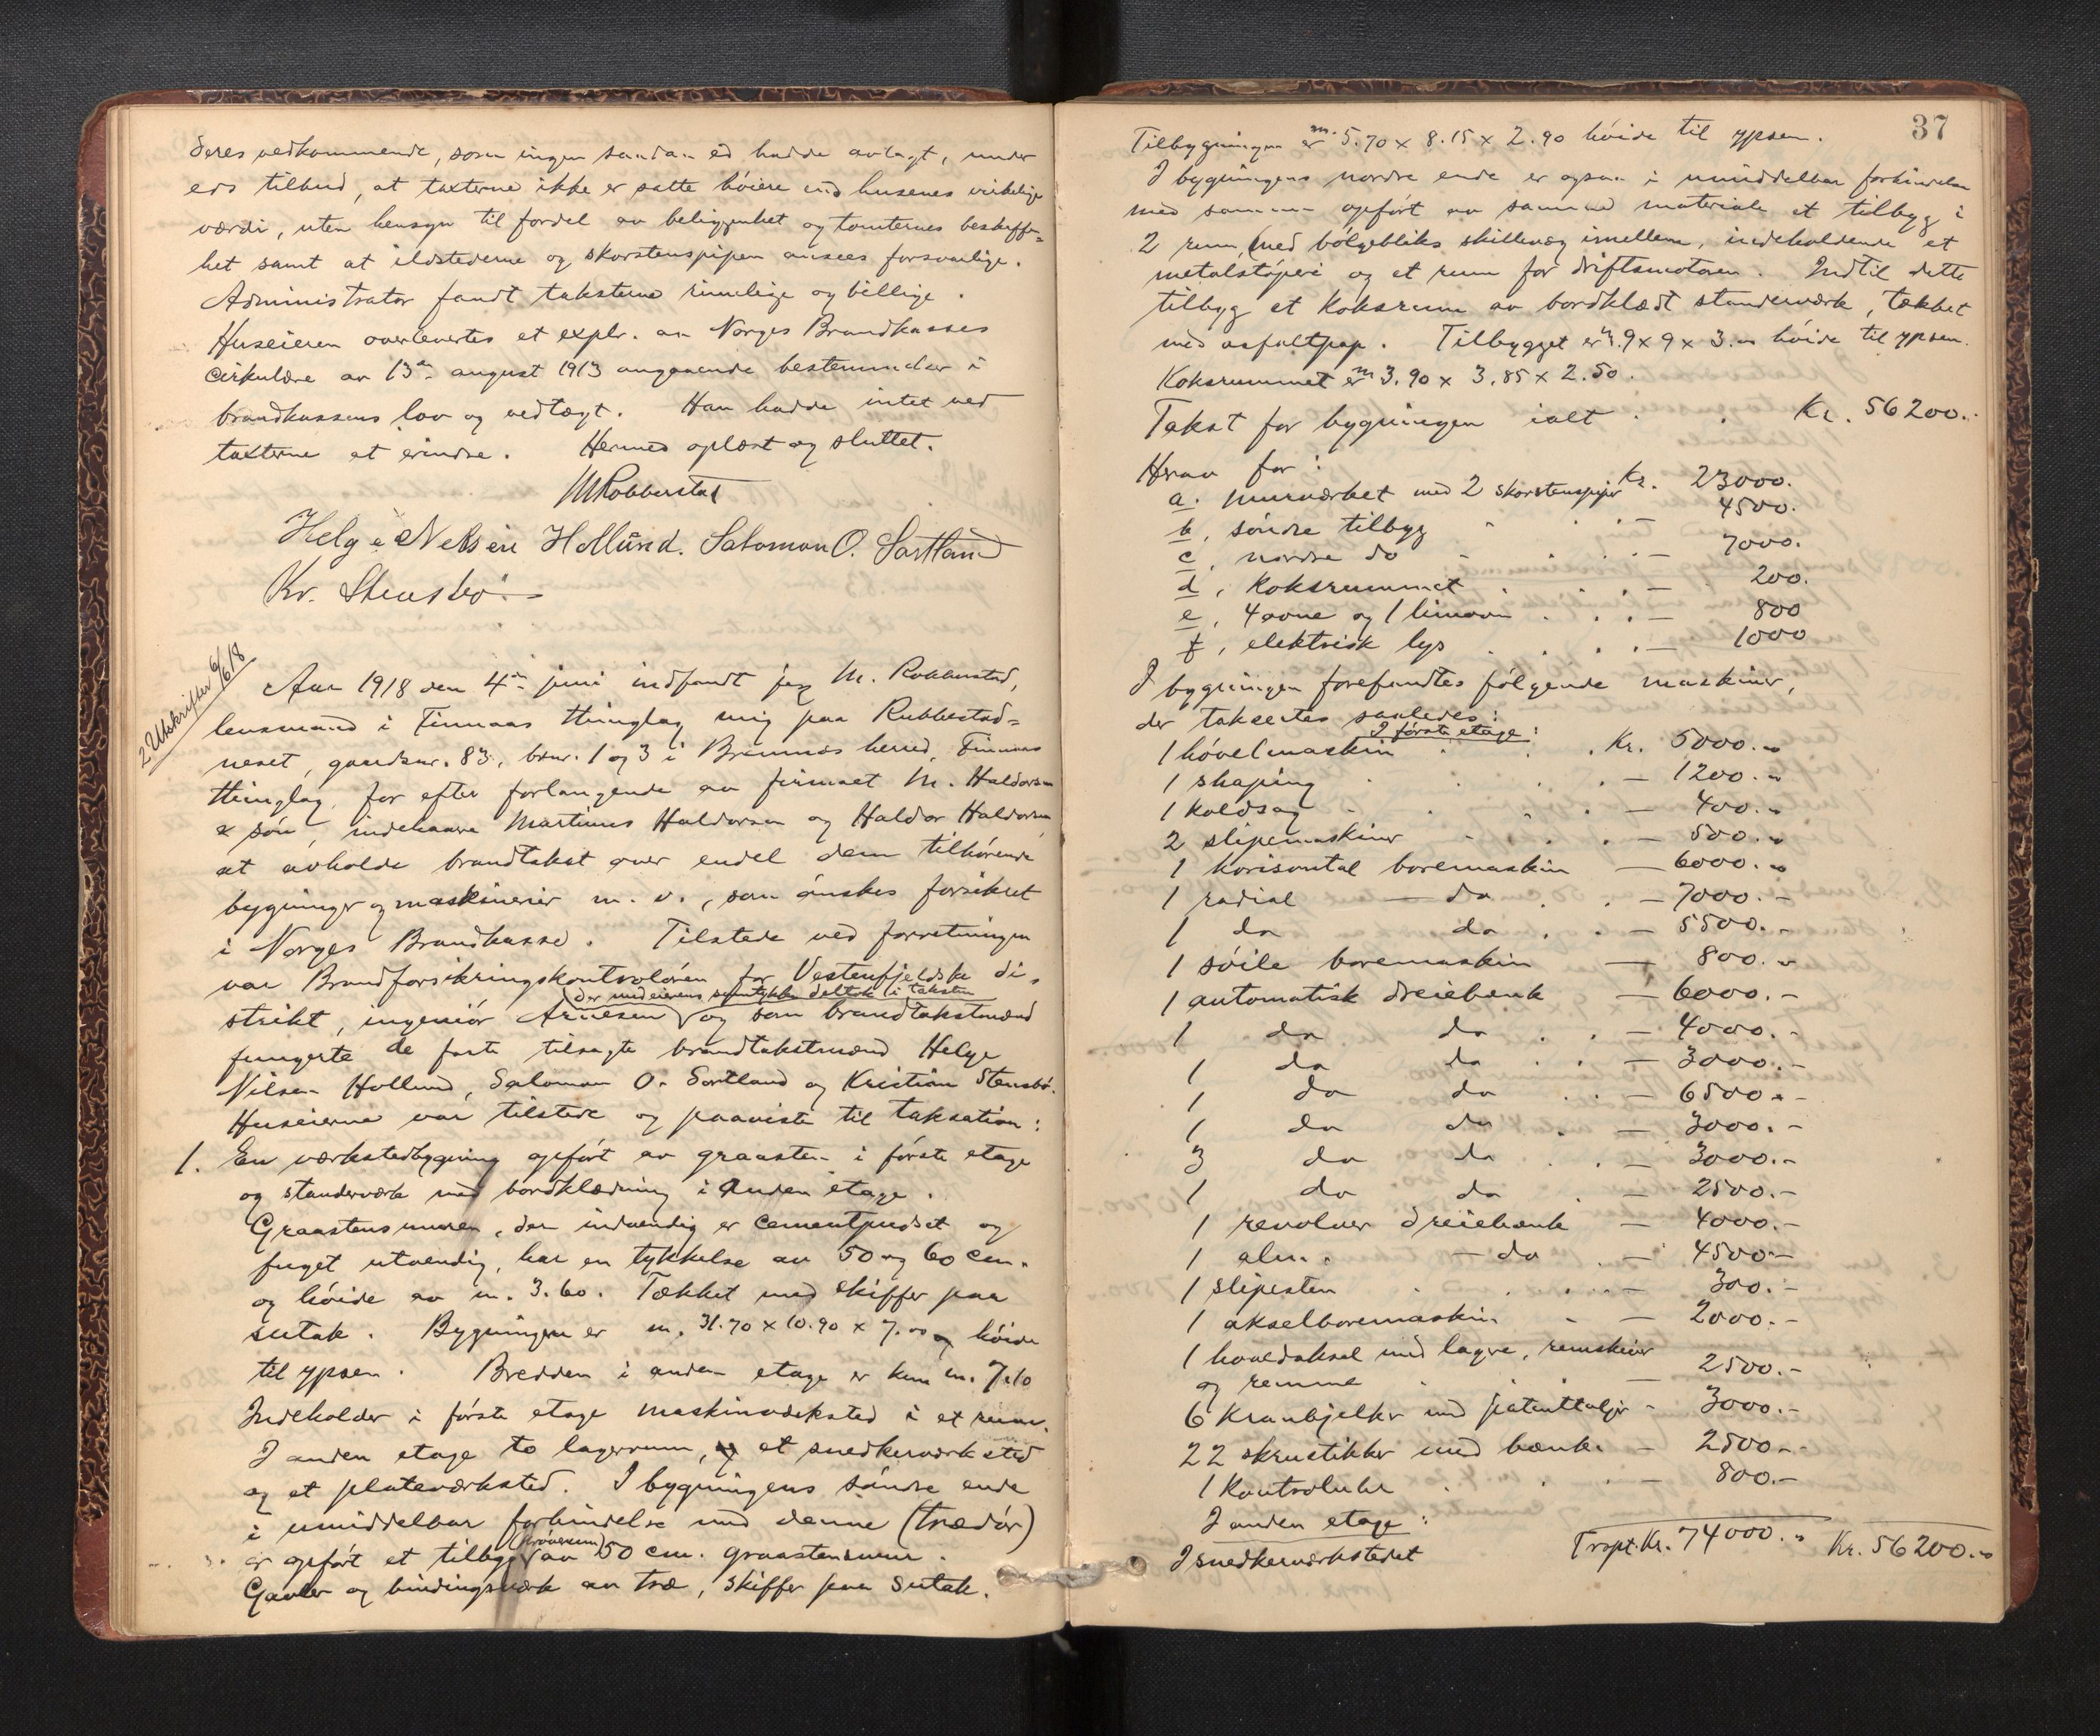 deres vedkommende, som ingen saadan ed hadde avlagt, under
eds tilbud, at taxterne ikke er satte høiere end husenes virkelige
værdi, uten hensyn til fordel av beliggenhet og tomternes beskaffen=
het samt at ildstederne og skorstenspipen ansees forsvarlige.
Administrator fandt taksterne rimelige og billige.
Huseieren overlevertes et expl. av Norges Brandkasses
cirkulære av 13de august 1913 angaaende bestemmelser i
brandkassens lov og vedtægt. Han hadde intet ved
taxterne at erindre. Hermed oplæst og sluttet.
M Robberstad
Helge Nelsen Hollund. Salomon O. Sortland
Kr. Stensbø.
2 Utskrifter 6/6 18
Aar 1918 den 4de juni indfandt jeg M. Robberstad,
lensmand i Finnaas thinglag mig paa Rubbestad=
neset, gaardsnr. 83, bnr. 1 og 3 i Bremnes herred, Finnaas
thinglag, for efter forlangende av firmaet M. Haldorsen
& søn, indehavere Martinus Haldorsen og Haldor Haldorsen
at avholde brandtakst over endel dem tilhørende
bygninger og maskinerier m. v., som ønskes forsikret
i Norges Brandkasse. Tilstede ved forretningen
var Brandforsikringskontroløren for Vestenfjeldske di=
der med eierens samtykke deltok i taksten
strikt, ingeniør Arnesen og som brandtakstmænd
fungerte de faste tilsagte brandtakstmænd Helge
Nilsen Hollund, Salomon O. Sortland og Kristian Stensbø.
Huseierne var tilstede og paaviste til taksation:
1. En værkstedbygning opført av graasten i første etage
og standerværk med bordklædning i anden etage.
Graastensmuren, der indvendig er cementpudset og
fuget utvendig, har en tykkelse av 50 og 60 cm.
og høide av m. 3.60. Tækket med skiffer paa
sutak. Bygningen er m. 31.70 x 10.90 x 7.00 høide
til ypsen. Bredden i anden etage er kun m. 7.10
Indeholder i første etage maskinverksted i et rum.
I anden etage to lagerrum, et snedkerværksted
og et plateværksted. I bygningens søndre ende
i umiddelbar forbindelse med denne (trædør)
(prøverum)
er opført et tilbygg av 50 cm. graastensmur.
Gavler og bindingsværk av træ, skiffer paa sutak.
37
Tilbygningen er m. 5.70 x 8.15 x 2.90 høide til ypsen.
I bygningens nordre ende er ogsaa i umiddelbar forbindelse
med samme opført av samme materiale et tilbygg i
2 rum (med bølgebliks skillevæg imellem, indeholdende et
metalstøperi og et rum for driftsmotoren. Indtil dette
tilbygg et koksrum av bordklædt standerværk, tækket
med asfaltpap. Tilbygget er m. 9 x 9 x 3.00 høide til ypsen.
Koksrummet er m 3.90 x 3.85 x 2.50.
Takst for bygningen ialt . . Kr. 56200.-
Herav for:
a. murværket med 2 skorstenspiper Kr. 23000.
b, søndre tilbygg - . . — 4500.
c, nordre do - . . — 7000.
d, koksrummet . . . — 200.
e, 4 ovne og 1 limovn . . . — 800
f, elektrisk lys . . . . — 1000
I bygningen forefandtes følgende maskiner,
der taksertes saaledes:
I første etage:
1 høvelmaskin . . . Kr. 5000.-
1 shaping . . . . — 1200.-
1 koldsag . . . . — 400.-
2 slipemaskiner . . . — 500.-
1 horisontal boremaskin — 6000.-
1 radial — do . . — 7000.-
1 do do . . — 5500.-
1 søile boremaskin — 800.-
1 automatisk dreiebænk — 6000.-
1 do do . . — 4000.-
1 do do . . — 3000.-
1 do do . . — 6500.-
1 do do . — 3000.-
3 do do . . — 3000.-
1 do do . — 2500.-
1 revolver dreiebænk — 4000.-
1 alm. — do . — 4500.-
1 slipesten . . . . — 300.-
1 akselboremaskin - — 2000.-
1 hovedaksel med lagre, remskiver
og remme . . . — 2500.-
6 Kranbjelker med patenttaljer - 3000.-
22 skrustikker med bænke — 2500.-
1 Kontroluhr . . . — 800.-
I anden etage:
I snedkerværkstedet Trspt. Kr. 74000.- Kr. 56200.-